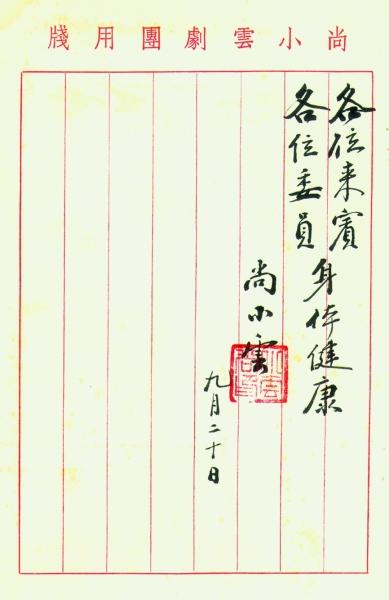 尚小雲劇團用牋
各位来賓
各位委員
身体健康
尚小雲
九月二十日